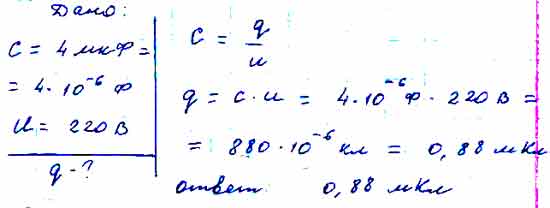 Дано:
C = 4 мкФ =
= 4·10⁻⁶ Ф
U = 220 В
q - ?
C = q/u
q = c·u = 4·10⁻⁶ Ф · 220 В =
= 880·10⁻⁶ кл = 0,88 мкл
ответ: 0,88 мкл